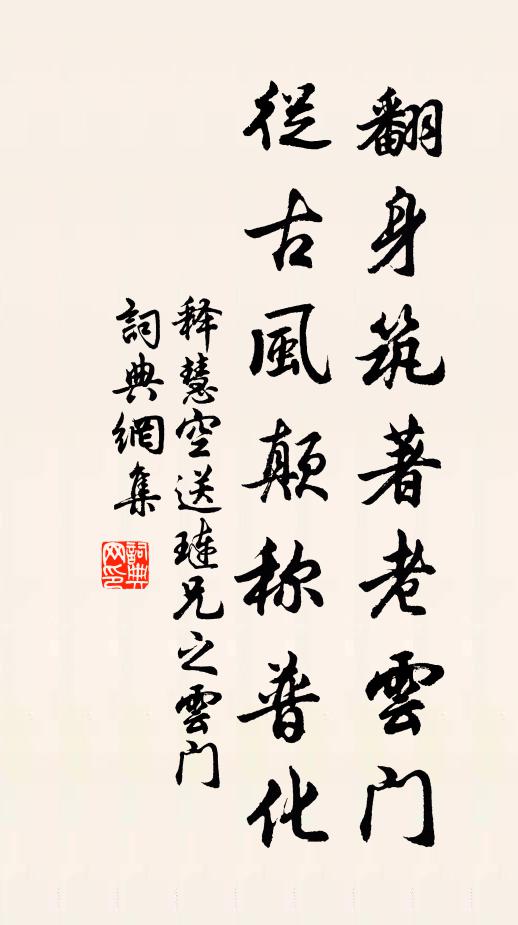 翻身筑著老雲门
從古風顛称普化
释慧空送璉兄之雲门
詞典網集
詞典网印